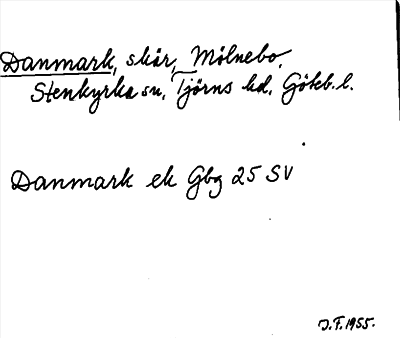 Danmark, skär, Mölnebo,
Stenkyrka sn, Tjörns hd, Göteb. l.
Danmark ek Gbg 25 SV
J. F. 1955.